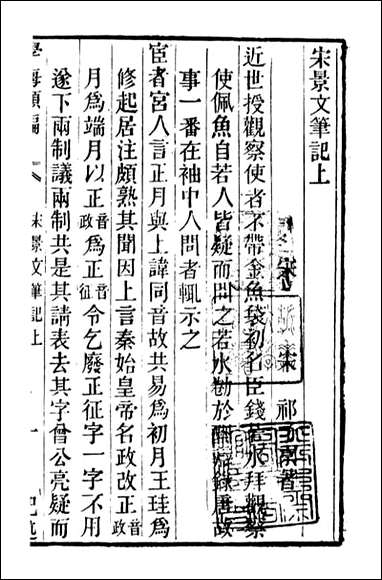 宋景文筆記上
宋　祁
近世授觀察使者不帶金魚袋初名臣錢若水拜觀察
使佩魚自若人皆疑而問之若水勌於酬錄唐故
事一番在袖中人問者輒示之
宦者宮人言正月與上諱同音故共易為初月王珪為
修起居注頗熟其聞因上言秦始皇帝名政改正音政
月為端月以正音政為正音征今乞廢正征字一字不用
遂下兩制議兩制共是其請表去其字曾公亮疑而
學海類編
宋景文筆記上
一